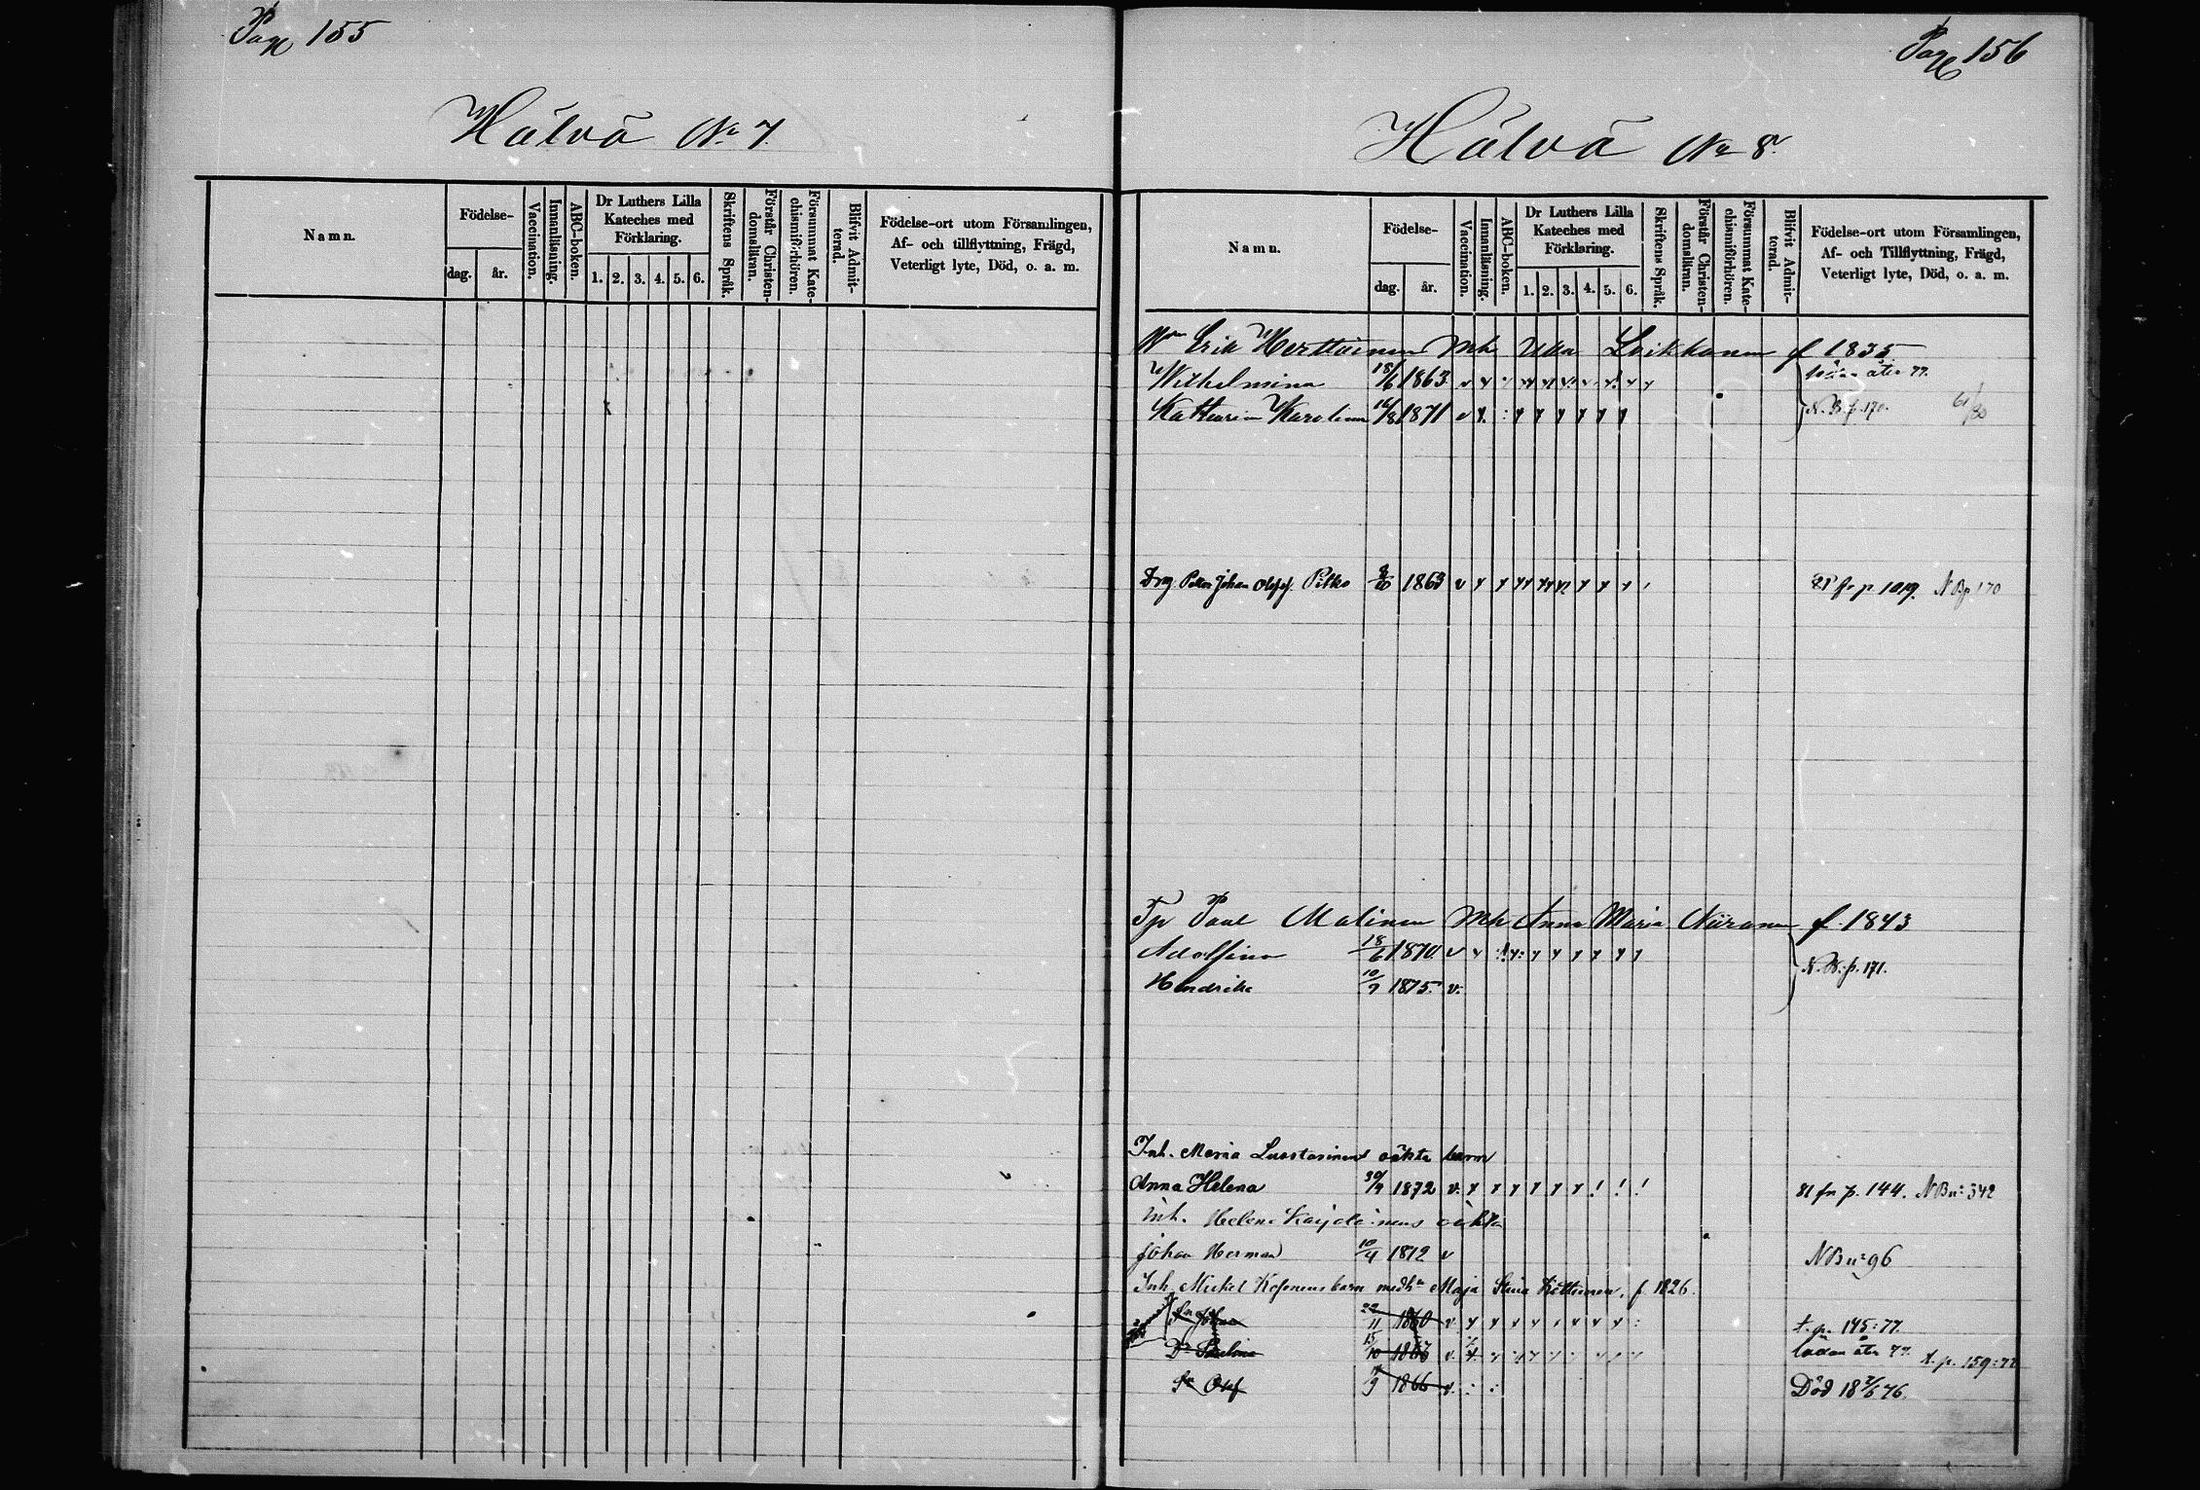 Pag 155
Hälvä No 7.
Namn.
Födelse-
dag.
år.
Vaccination.
Innanläsning.
ABC-boken.
Dr Luthers Lilla
Kateches med
Förklaring.
1. 2. 3. 4. 5. 6.
Skriftens Språk.
Förstår Christen-
domsläran.
Försummat Kate-
chismiförhören.
Blifvit Admit-
terad.
Födelse-ort utom Församlingen,
Af- och tillflyttning, Frägd,
Veterligt lyte, Död, o. a. m.
Pag 156
Hälvä No 8.
Namn.
Födelse-
dag.
år.
Vaccination.
Innanläsning.
ABC-boken.
Dr Luthers Lilla
Kateches med
Förklaring.
1. 2. 3. 4. 5. 6.
Skriftens Språk.
Förstår Christen-
domsläran.
Försummat Kate-
chismiförhören.
Blifvit Admit-
terad.
Födelse-ort utom Församlingen,
Af- och Tillflyttning, Frägd,
Veterligt lyte, Död, o. a. m.
Erik Herttuinen Mh Ulla Loikkanen f 1835
Wilhelmina 18/6 1863 åter 77.
Katharina Karolina 16/8 1871 N.B.p.170.
Drg Petter Johan Olofsf. Pitko 1863 81 fr p 1019. NBp 170
Tp Paul Malinen Mh Anna Maria Niiranen f 1843
Adolfina 18/6 1870 N.B.p.171.
Hendrika 10/7 1875
Inh. Maria Luostarinens oäkta barn
Anna Helena 30/9 1872 81 fr p. 144. NBn: 342
Inh. Helena Karjalainens oäkta
Johan Herman 10/4 1872 NBn: 96
Inh. Mickel barn med hu Maja Stina f 1826.
Sn Johan 22/11 1860 t.p. 145:77.
Dr Paulina 15/10 1863 åter 77. t.p. 159:77
Sn Olof 1866 Död 18 76.